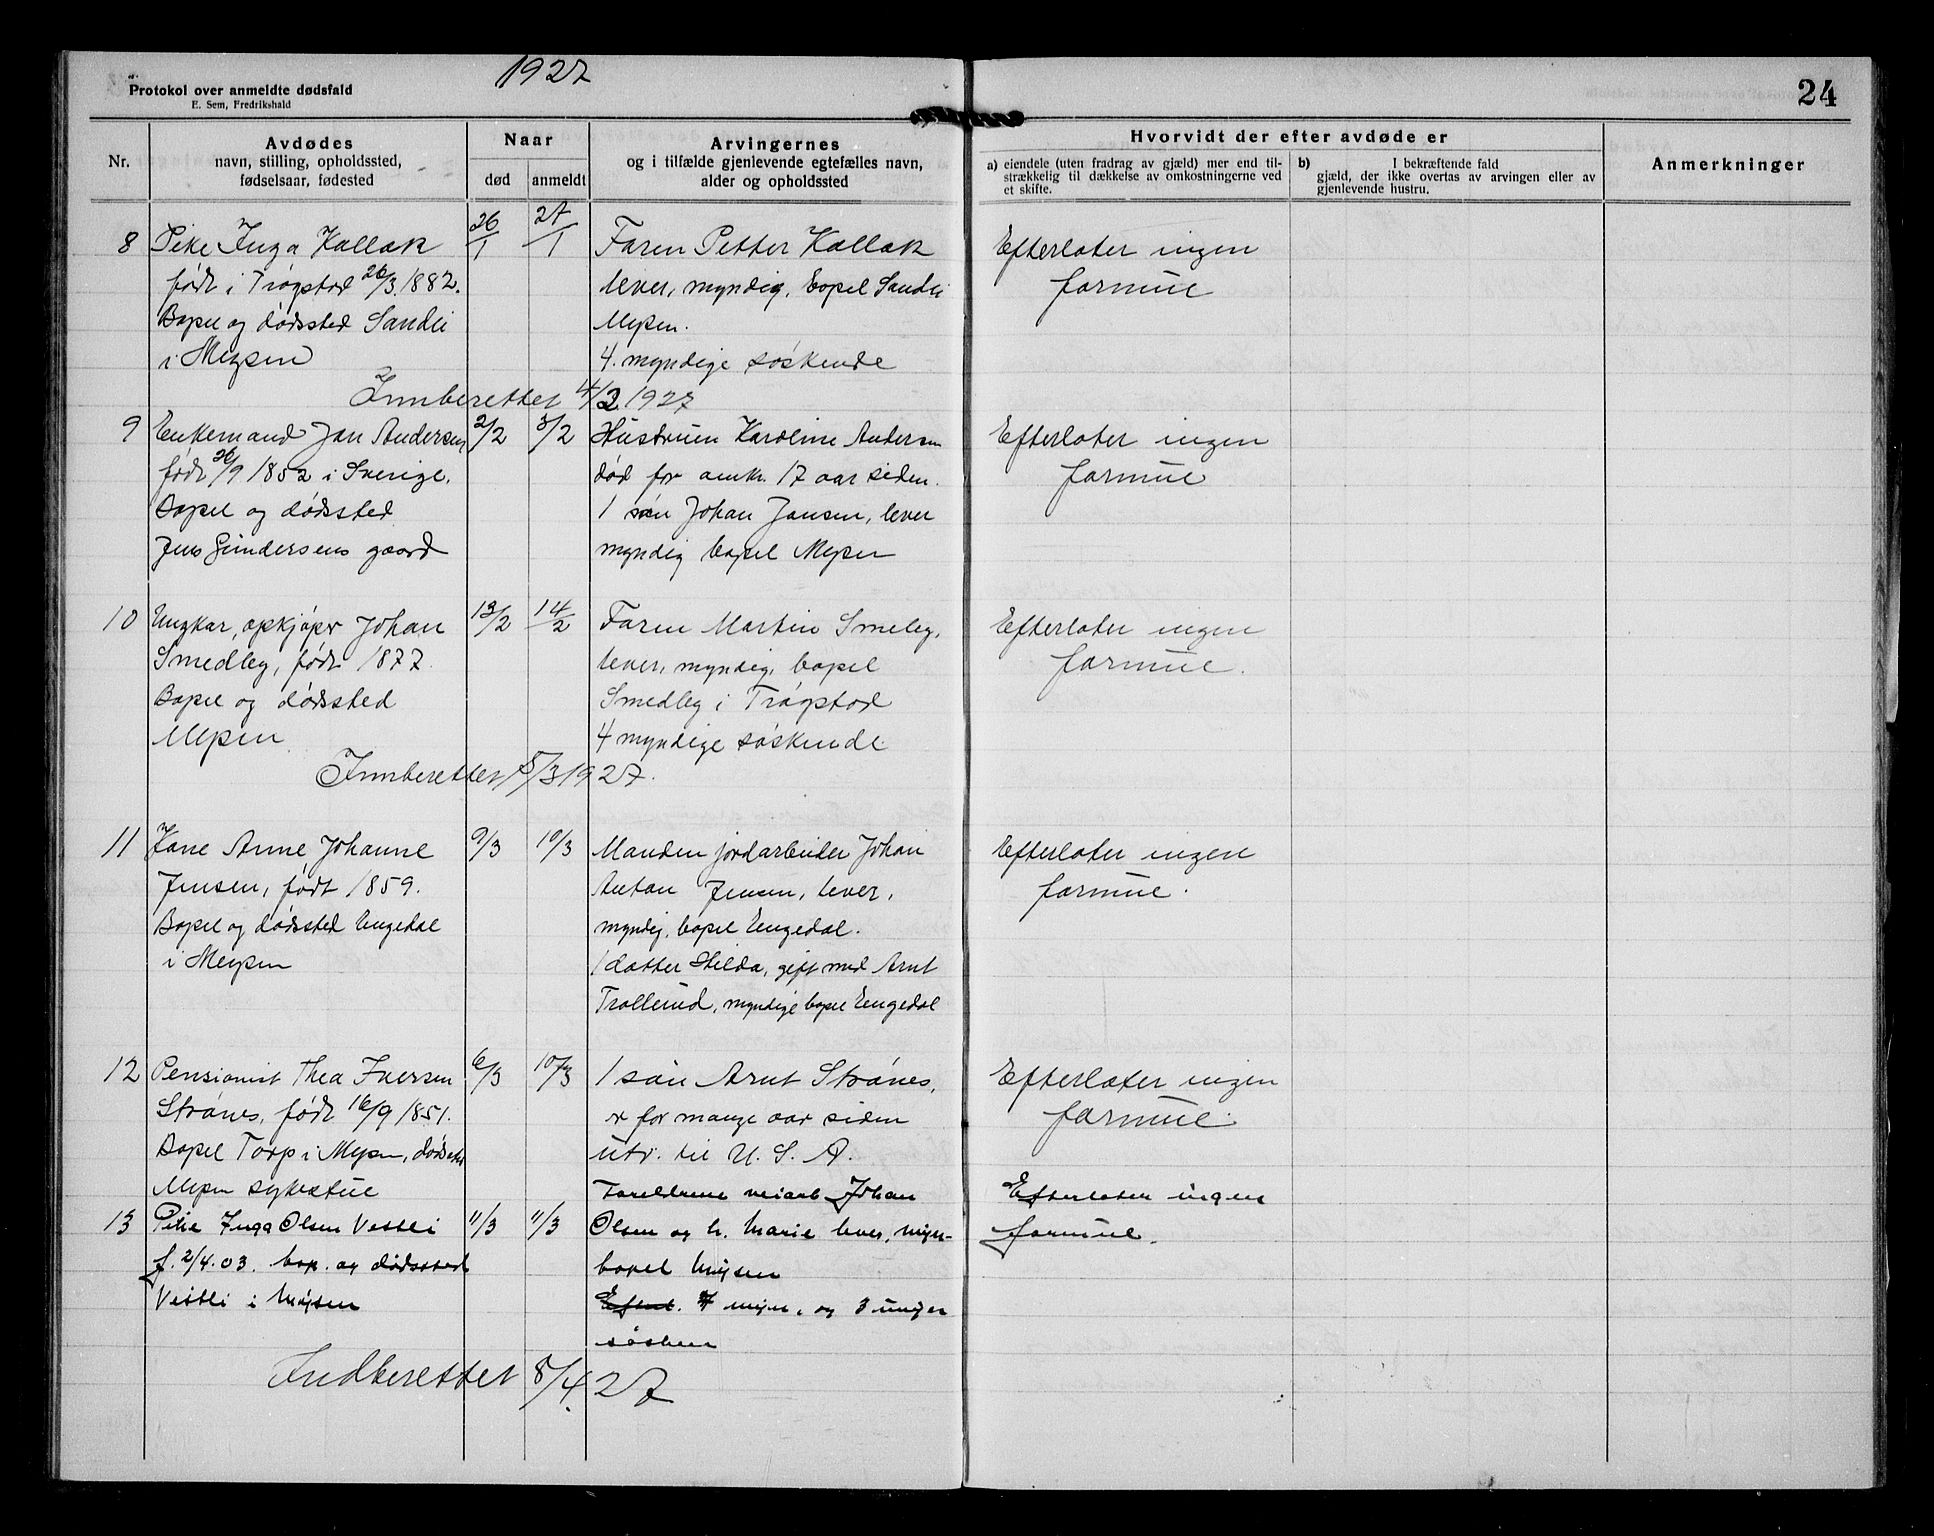 1927
24
Protokol over anmeldte dødsfald
E. Sem, Fredrikshald
Nr.
Avdødes
navn, stilling, opholdssted,
fødselsaar, fødested
Naar
død
anmeldt
Arvingernes
og i tilfælde gjenlevende egtefælles navn,
alder og opholdssted
Hvorvidt der efter avdøde er
a) eiendele (uten fradrag av gjæld) mer end til-
strækkelig til dækkelse av omkostningerne ved
et skifte.
b) I bekræftende fald
gjæld, der ikke overtas av arvingen eller av
gjenlevende hustru.
Anmerkninger
8
Pike Inga Kallak
født i Trøgstad 26/3. 1882.
Bopel og dødssted Sandli
i Mysen
26/1
27/1
Faren Petter Kallak
lever, myndig, bopel Sandli
Mysen.
4 myndige søskende
Efterlater ingen
formue
Innberettet 4/2 1927
9
Enkemand Jan Andersen
født 26/9 1852 i Sverige.
Bopel og dødssted
Jens Gundersens gaard
2/2
3/2
Hustruen Karoline Andersen
død for omkr. 17 aar siden.
1 søn Johan Jansen, lever
myndig bopel Mysen
Efterlater ingen
formue
10
Ungkar, opkjøper Johan
Smedby, født 1877.
Bopel og dødssted
Mysen
13/2
14/2
Faren Martin Smeby,
lever, myndig, bopel
Smedby i Trøgstad
4 myndige søskende
Efterlater ingen
formue.
Innberettet 5/3 1927.
11
Kone Anne Johanne
Jensen, født 1859.
Bopel og dødssted Engedal
i Mysen
9/3
10/3
Manden jordarbeider Johan
Anton Jensen, lever,
myndig, bopel Engedal.
1 datter Hilda, gift med Arnt
Trollerud, myndige bopel Engedal
Efterlater ingen
formue.
12
Pensionist Thea Iversen
Strønes, født 16/9 1851.
Bopel Torp i Mysen, dødssted
Mysen sykestue
6/3
10/3
1 søn Arnt Strønes,
er for mange aar siden
utv. til U. S. A.
Efterlater ingen
formue.
13
Pike Inga Olsen Vestli
f. 2/4.03. bop. og dødssted
Vestli i Mysen
11/3
11/3
Foreldrene veiarb Johan
Olsen og h. Marie lever, myn-
bopel Mysen
7 myn. og 3 umyn
søsken
Efterlater ingen
formue.
Indberettet 5/4. 27